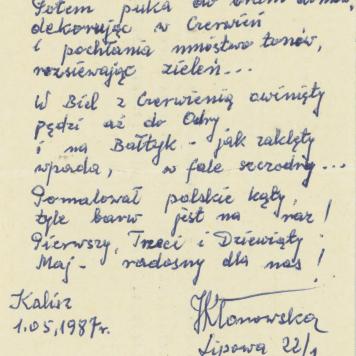 Potem puka do okien domów,
dekorując w Czerwień
i pochłania mnóstwo tonów,
rozsiewając zieleń...
W Biel z Czerwienią owinięty
pędzi aż do Odry
i na Bałtyk - jak zaklęty
wpada, w fale szczodry...
Pomalował polskie kąty,
tyle barw jest na raz!
Pierwszy, Trzeci i Dziewiąty
Maj - radosny dla nas!
Kalisz
1.05.1987r.
HKlonowska
Lipowa 22/1